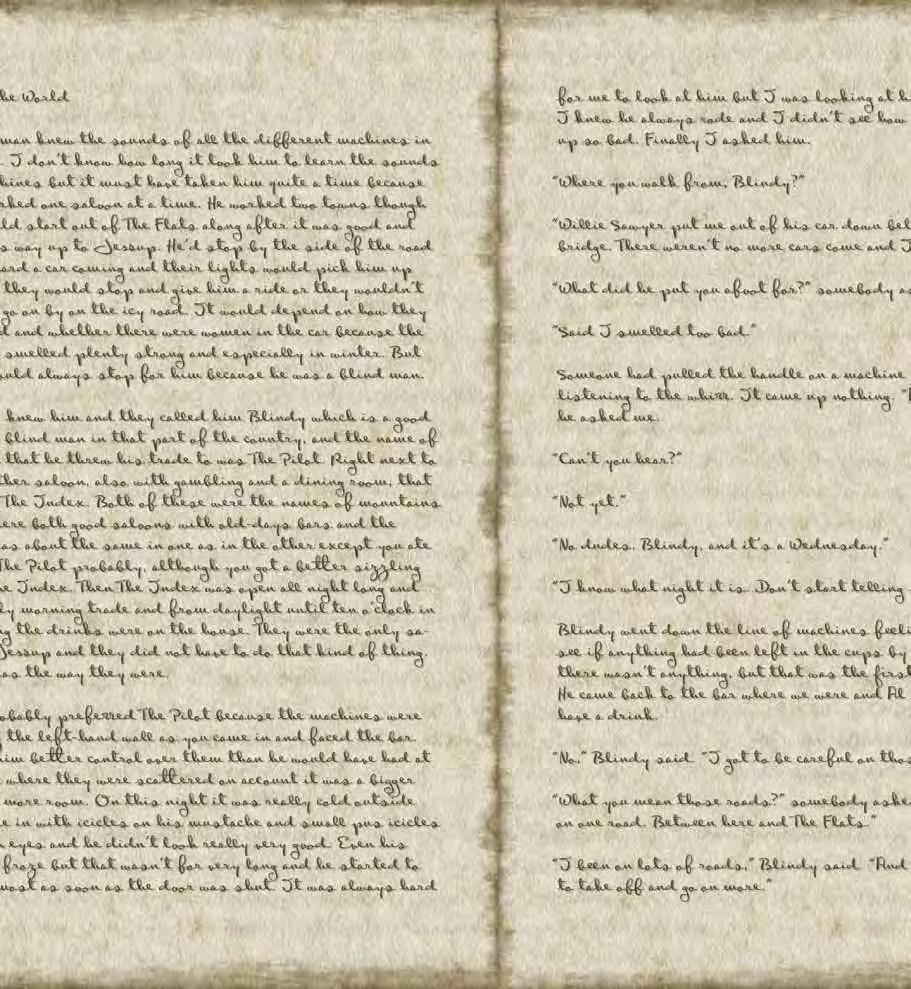 he World
man knew the sounds of all the different machines in
. I don't know how long it took him to learn the sounds
hines but it must have taken him quite a time because
rked one saloon at a time. He worked two towns though
ld start out of The Flats along after it was good and
s way up to Jessup. He'd stop by the side of the road
ard a car coming and their lights would pick him up
they would stop and give him a ride or they wouldn't
go on by on the icy road. It would depend on how they
d and whether there were women in the car because the
smelled plenty strong and especially in winter. But
uld always stop for him because he was a blind man.
knew him and they called him Blindy which is a good
blind man in that part of the country, and the name of
that he threw his trade to was The Pilot. Right next to
ther saloon, also with gambling and a dining room, that
The Index. Both of these were the names of mountains
ere both good saloons with old-days bars and the
as about the same in one as in the other except you ate
The Pilot probably, although you got a better sizzling
he Index. Then The Index was open all night long and
ly morning trade and from daylight until ten o'clock in
ng the drinks were on the house. They were the only sa-
Jessup and they did not have to do that kind of thing.
as the way they were.
obably preferred The Pilot because the machines were
the left-hand wall as you came in and faced the bar.
him better control over them than he would have had at
where they were scattered on account it was a bigger
more room. On this night it was really cold outside
e in with icicles on his mustache and small pus icicles
n eyes and he didn't look really very good. Even his
froze but that wasn't for very long and he started to
most as soon as the door was shut. It was always hard
for me to look at him but I was looking at h
I knew he always rode and I didn't see how
up so bad. Finally I asked him.
"Where you walk from, Blindy?"
"Willie Sawyer put me out of his car down bel
bridge. There weren't no more cars come and I
"What did he put you afoot for?" somebody as
"Said I smelled too bad."
Someone had pulled the handle on a machine
listening to the whirr. It came up nothing. "
he asked me.
"Can't you hear?"
"Not yet."
"No dudes, Blindy, and it's a Wednesday."
"I know what night it is. Don't start telling
Blindy went down the line of machines feeli
see if anything had been left in the cups by
there wasn't anything, but that was the first
He came back to the bar where we were and Al
have a drink.
"No," Blindy said. "I got to be careful on thos
"What you mean those roads?" somebody aske
on one road. Between here and The Flats."
"I been on lots of roads," Blindy said. "And
to take off and go on more."